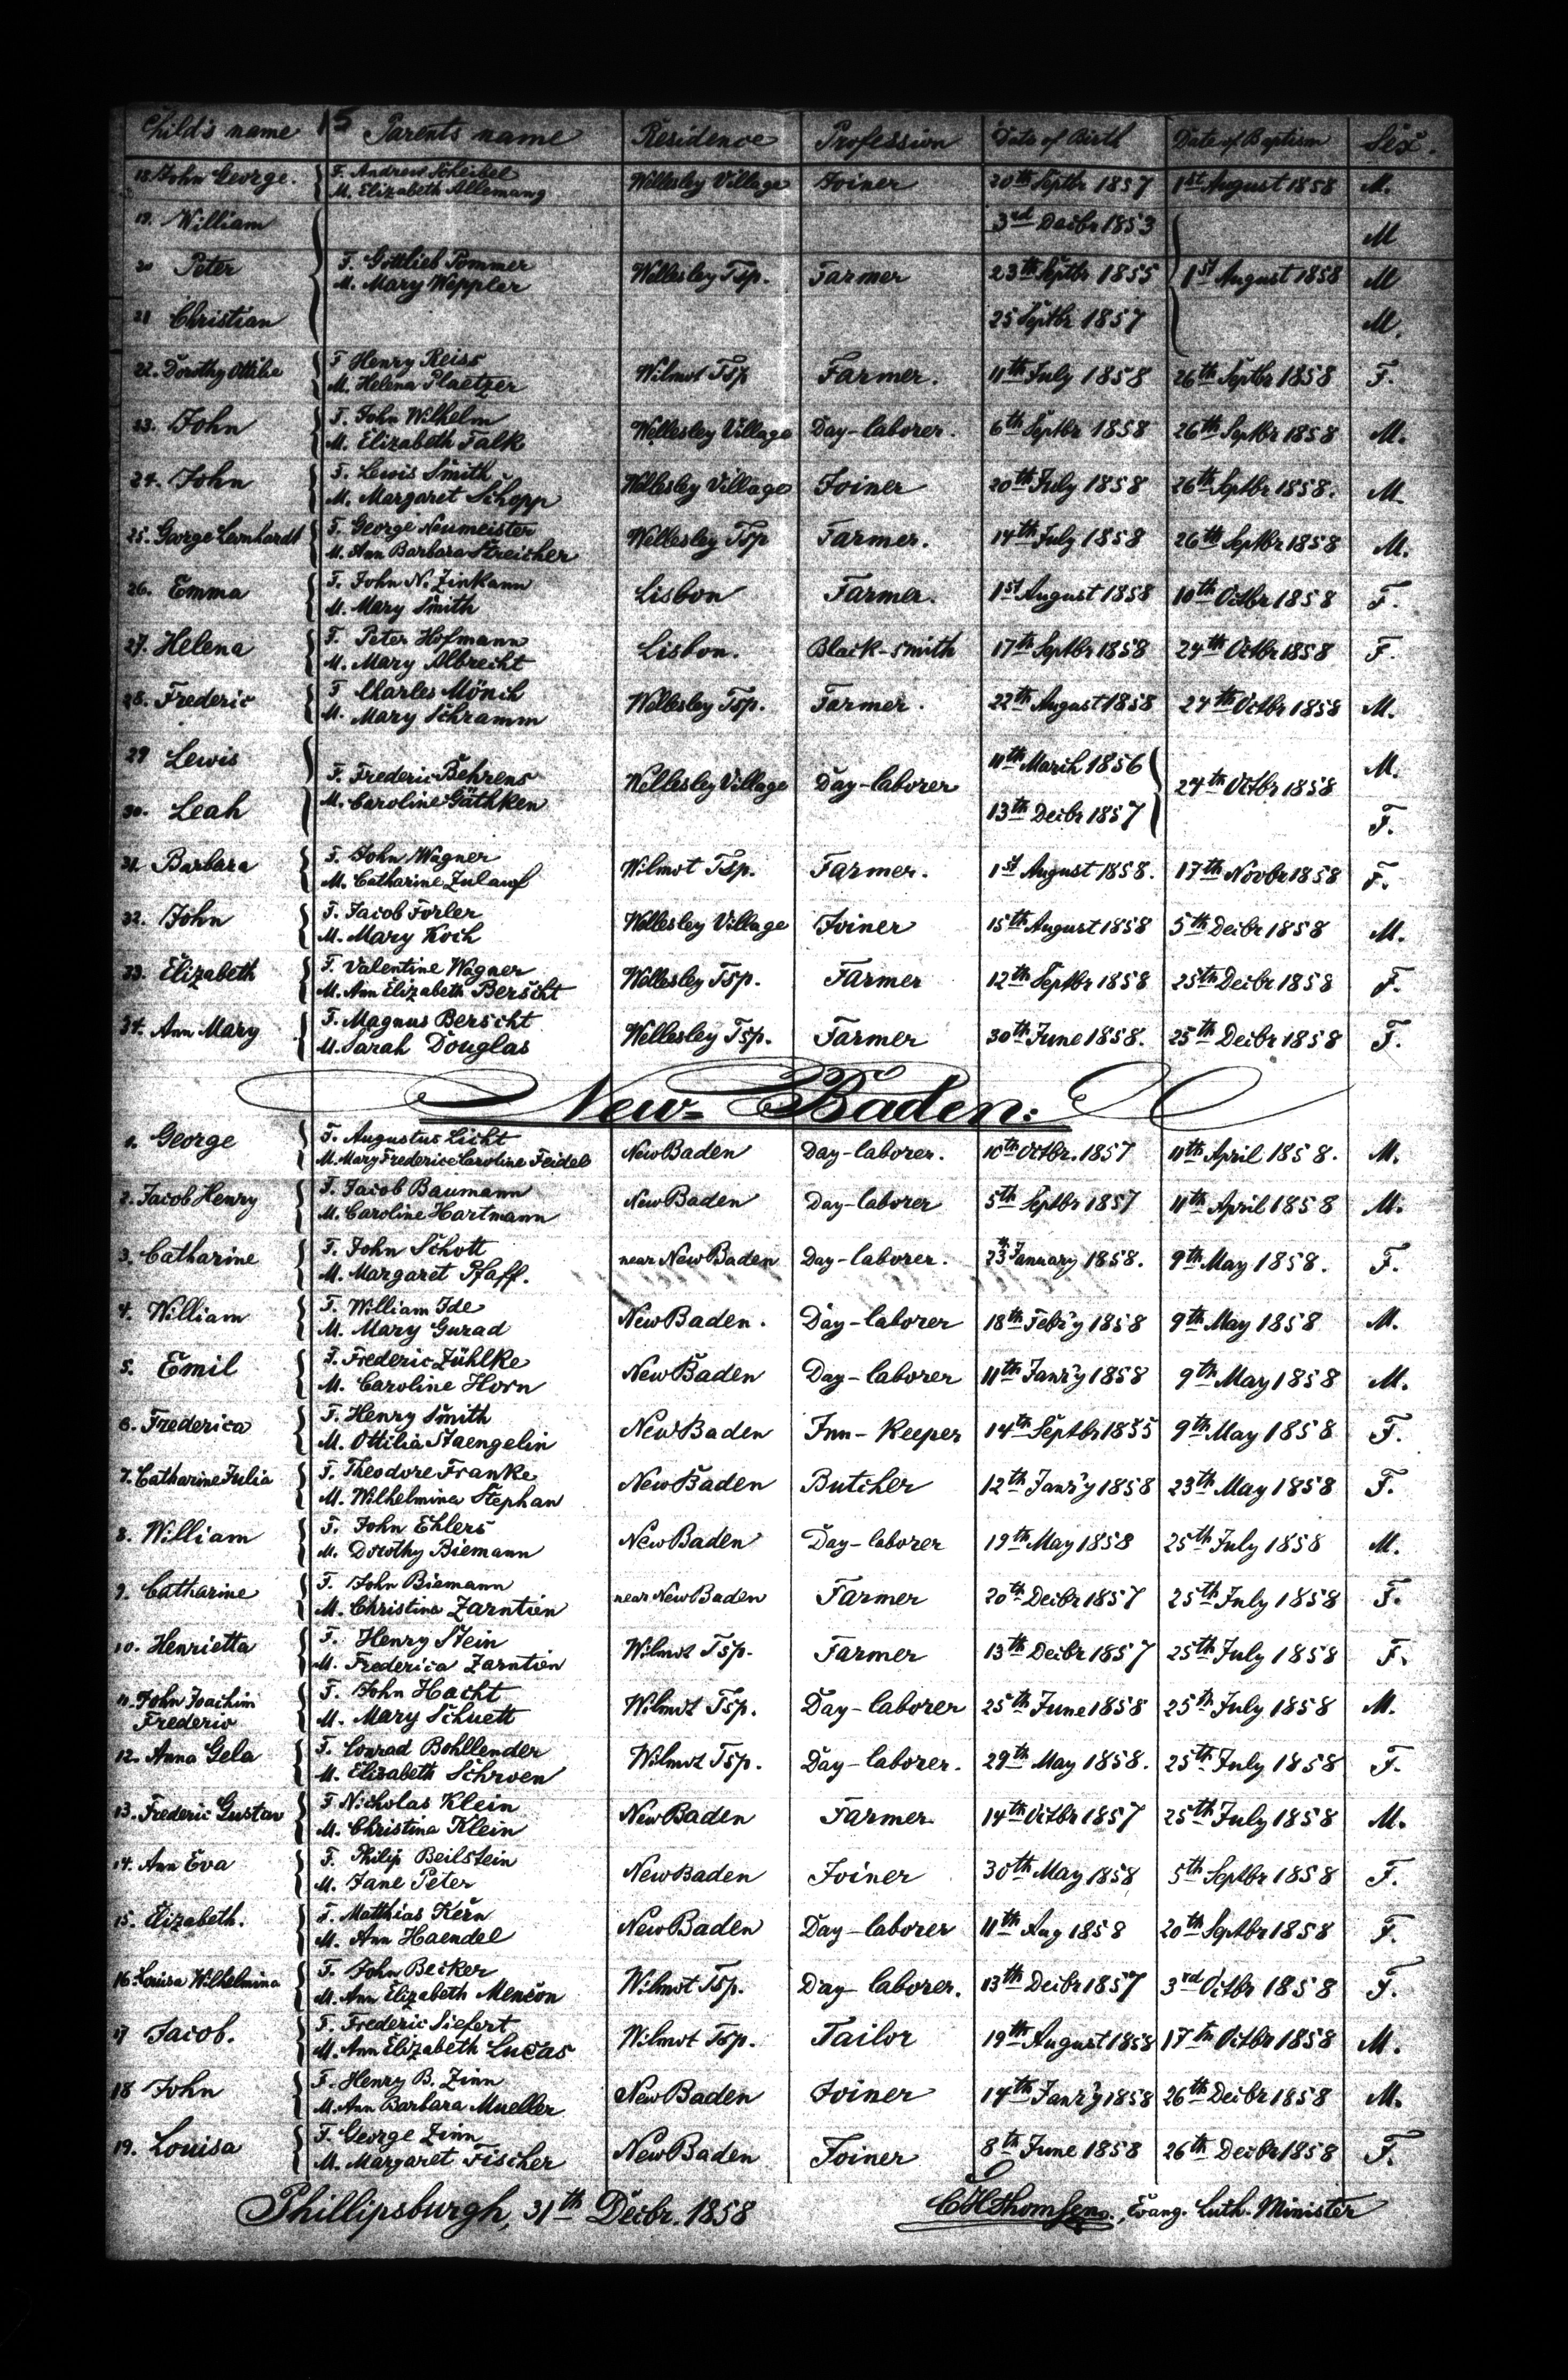 15
Child's name Parents name Residence Profession Date of Birth Date of Baptism Sex.
18. John George. F. Andrew Scheibel Wellesley Village Joiner 20th Septbr 1857 1st August 1858 M.
M. Elizabeth Allemang
19. William 3rd Decbr 1853 M
20 Peter F. Gottlieb Pommer Wellesley Tsp. Farmer 23th Septbr 1855 1st August 1858 M
M. Mary Weppler
21 Christian 25 Septbr 1857 M.
22. Dorothy Ottilie F Henry Reiss Wilmot Tsp Farmer. 11th July 1858 26th Septbr 1858 F.
M. Helena Plaetzer
23. John F. John Wilhelm Wellesley Village Day-laborer. 6th Septbr 1858 26th Septbr 1858 M.
M. Elizabeth Falk
24. John F. Lewis Smith Wellesley Village Joiner 20th July 1858 26th Septbr 1858. M
M. Margaret Schopp
25. George Leonhardt F. George Neumeister Wellesley Tsp Farmer. 14th July 1858 26th Septbr 1858 M.
M. Ann Barbara Streicher
26. Emma F. John N. Zinkann Lisbon Farmer. 1st August 1858 10th Octbr 1858 F.
M. Mary Smith
27. Helena F. Peter Hofmann Lisbon. Black-smith 17th Septbr 1858 24th Octbr 1858 F.
M. Mary Albrecht
28. Frederic F Charles Mönch Wellesley Tsp. Farmer. 22th August 1858 24th Octbr 1858 M.
M. Mary Schramm
29 Lewis 11th March 1856 M.
F. Frederic Behrens Wellesley Village Day-laborer 24th Octbr 1858
M. Caroline Gäthken
30. Leah 13th Decbr 1857 F.
31. Barbara F. John Wagner Wilmot Tsp. Farmer. 1st August 1858. 17th Novbr 1858 F.
M. Catharine Zulauf
32. John F. Jacob Forler Wellesley Village Joiner 15th August 1858 5th Decbr 1858 M.
M. Mary Koch
33. Elizabeth F. Valentine Wagner Wellesley Tsp. Farmer 12th Septbr 1858 25th Decbr 1858 F.
M. Ann Elizabeth Berscht
34. Ann Mary F. Magnus Berscht Wellesley Tsp. Farmer 30th June 1858. 25th Decbr 1858 F.
M. Sarah Douglas
New-Baden:
1. George F. Augustus Licht New Baden Day-laborer. 10th Octbr. 1857 11th April 1858. M.
M. Mary Frederice Caroline Feidel
2. Jacob Henry F. Jacob Baumann New Baden Day-laborer 5th Septbr 1857 11th April 1858 M.
M. Caroline Hartmann
3. Catharine F. John Schott near New Baden Day-laborer. 23th January 1858. 9th May 1858. F.
M. Margaret Pfaff.
4. William F. William Ide New Baden. Day-laborer 18th Feb'ry 1858 9th May 1858 M.
M. Mary Gurad
5. Emil F. Frederic Zühlke New Baden Day-laborer 11th Janr'y 1858 9th May 1858 M.
M. Caroline Horn
6. Frederica F. Henry Smith New Baden Inn-Keeper 14th Septbr 1855 9th May 1858 F.
M. Ottilia Staengelin
7. Catharine Julia F. Theodore Franke New Baden Butcher 12th Janr'y 1858 23th May 1858 F.
M. Wilhelmina Stephan
8. William F. John Ehlers New Baden Day-laborer 19th May 1858 25th July 1858 M.
M. Dorothy Biemann
9. Catharine F. John Biemann near New Baden Farmer 20th Decbr 1857 25th July 1858 F.
M. Christina Zarntien
10. Henrietta F. Henry Stein Wilmot Tsp. Farmer 13th Decbr 1857 25th July 1858 F.
M. Frederica Zarntien
11. John Joachim F. John Hacht Wilmot Tsp. Day-laborer 25th June 1858 25th July 1858 M.
Frederic M. Mary Schuett
12. Anna Gela F. Conrad Bohllender Wilmot Tsp. Day-laborer. 29th May 1858. 25th July 1858 F.
M. Elizabeth Schroen
13. Frederic Gustav F Nicholas Klein New Baden Farmer 14th Octbr 1857 25th July 1858 M.
M. Christina Klein
14. Ann Eva F. Philip Beilstein New Baden Joiner 30th May 1858 5th Septbr 1858 F.
M. Jane Peter
15. Elizabeth. F. Matthias Kern New Baden Day-laborer 11th Aug 1858 20th Septbr 1858 F.
M. Ann Haendel
16. Louisa Wilhelmina F. John Becker Wilmot Tsp. Day-laborer. 13th Decbr 1857 3rd Octbr 1858 F.
M. Ann Elizabeth Menčon
17 Jacob. F. Frederic Siefert Wilmot Tsp. Tailor 19th August 1858 17th Octbr 1858 M.
M. Ann Elizabeth Lucas
18 John F. Henry B. Zinn New Baden Joiner 14th Janr'y 1858 26th Decbr 1858 M.
M. Ann Barbara Mueller
19. Louisa F. George Zinn New Baden Joiner 8th June 1858 26th Decbr 1858 F.
M. Margaret Fischer
Phillipsburgh, 31th Decbr. 1858 CHThomsen., Evang. Luth. Minister